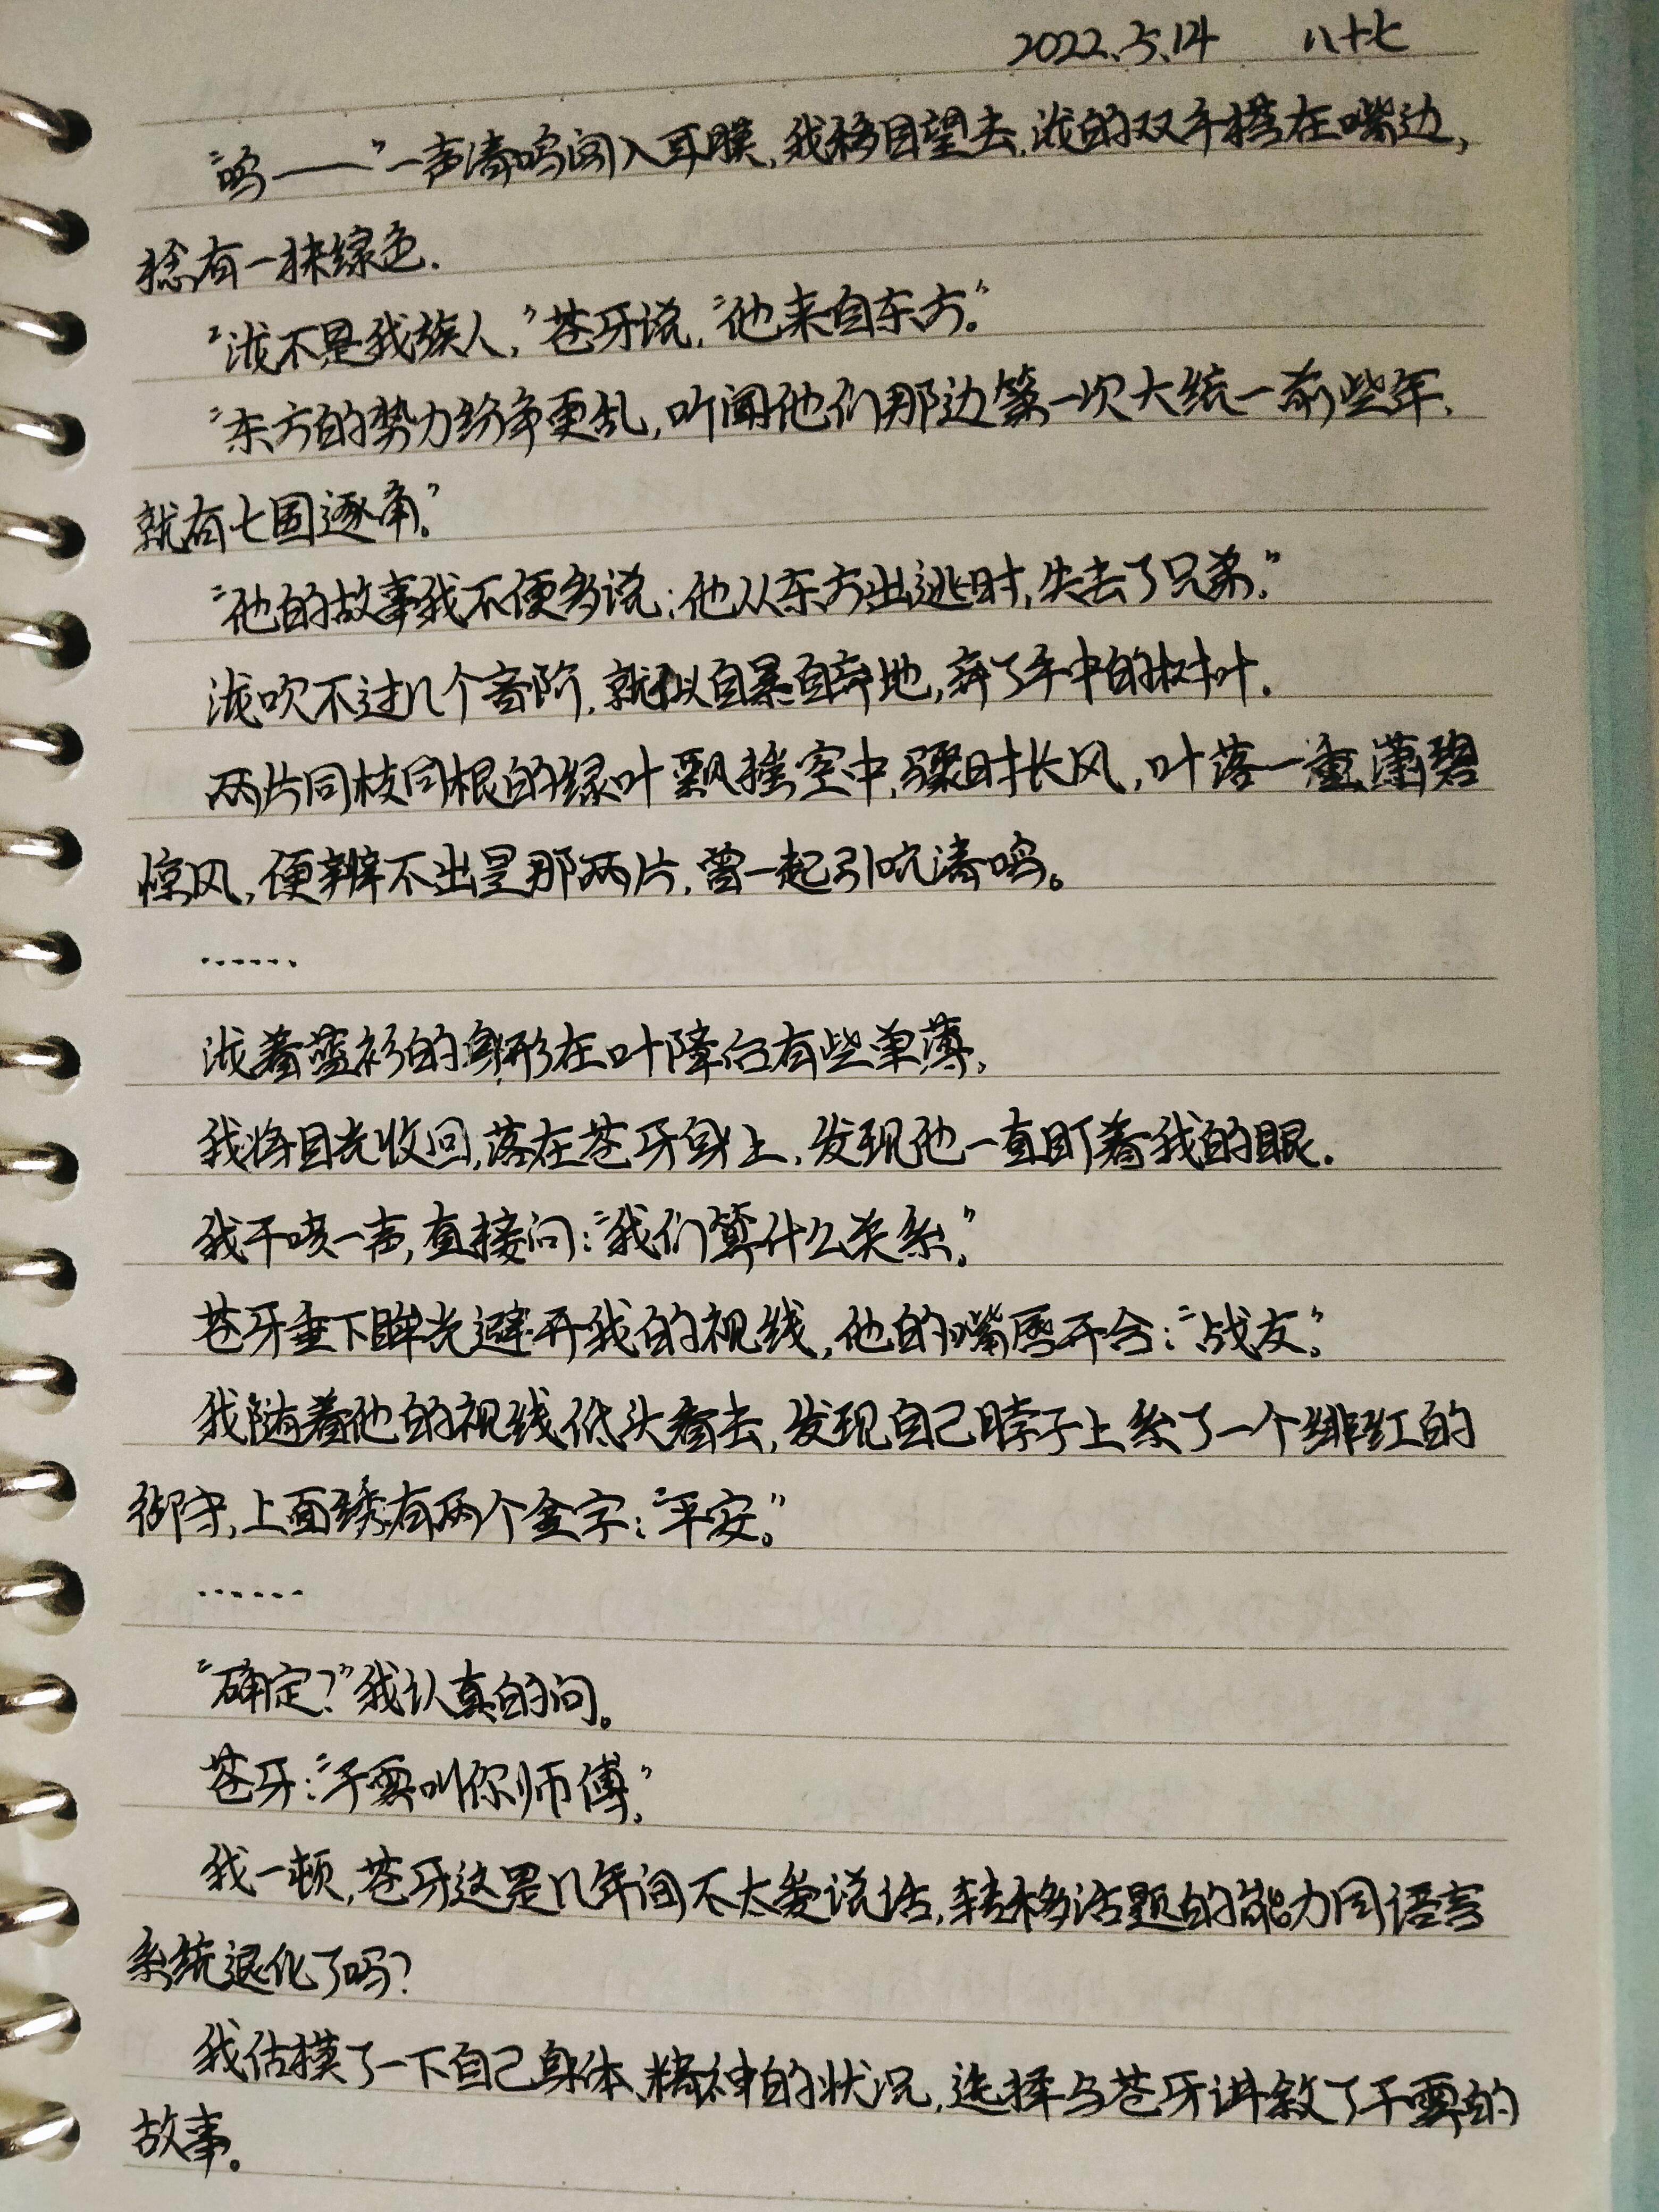 2022.5.14 八十七
“呜——”一声清鸣闯入耳膜，我移目望去，泷的双手搭在嘴边，
捻有一抹绿色.
“泷不是我族人，”苍牙说，“他来自东方。”
“东方的势力纷争更乱，听闻他们那边第一次大统一前些年，
就有七国逐角。”
“他的故事我不便多说；他从东方出逃时，失去了兄弟。”
泷吹不过几个音阶，就似自暴自弃地，弃了手中的树叶.
两片同枝同根的绿叶飘摇空中，骤时长风，叶落一重萧碧
惊风，便辨不出是那两片，曾一起引吭清鸣。
……
泷着蓝衫的身形在叶障后有些单薄。
我将目光收回，落在苍牙身上，发现他一直盯着我的眼.
我干咳一声，直接问：“我们算什么关系。”
苍牙垂下眸光避开我的视线，他的嘴唇开合：“战友。”
我随着他的视线低头看去，发现自己脖子上系了一个绯红的
御守，上面绣有两个金字：“平安。”
……
“确定？”我认真的问。
苍牙：“千雲叫你师傅。”
我一顿，苍牙这是几年间不太爱说话，转移话题的能力同语言
系统退化了吗？
我估摸了一下自己身体、精神的状况，选择与苍牙讲叙了千雲的
故事。